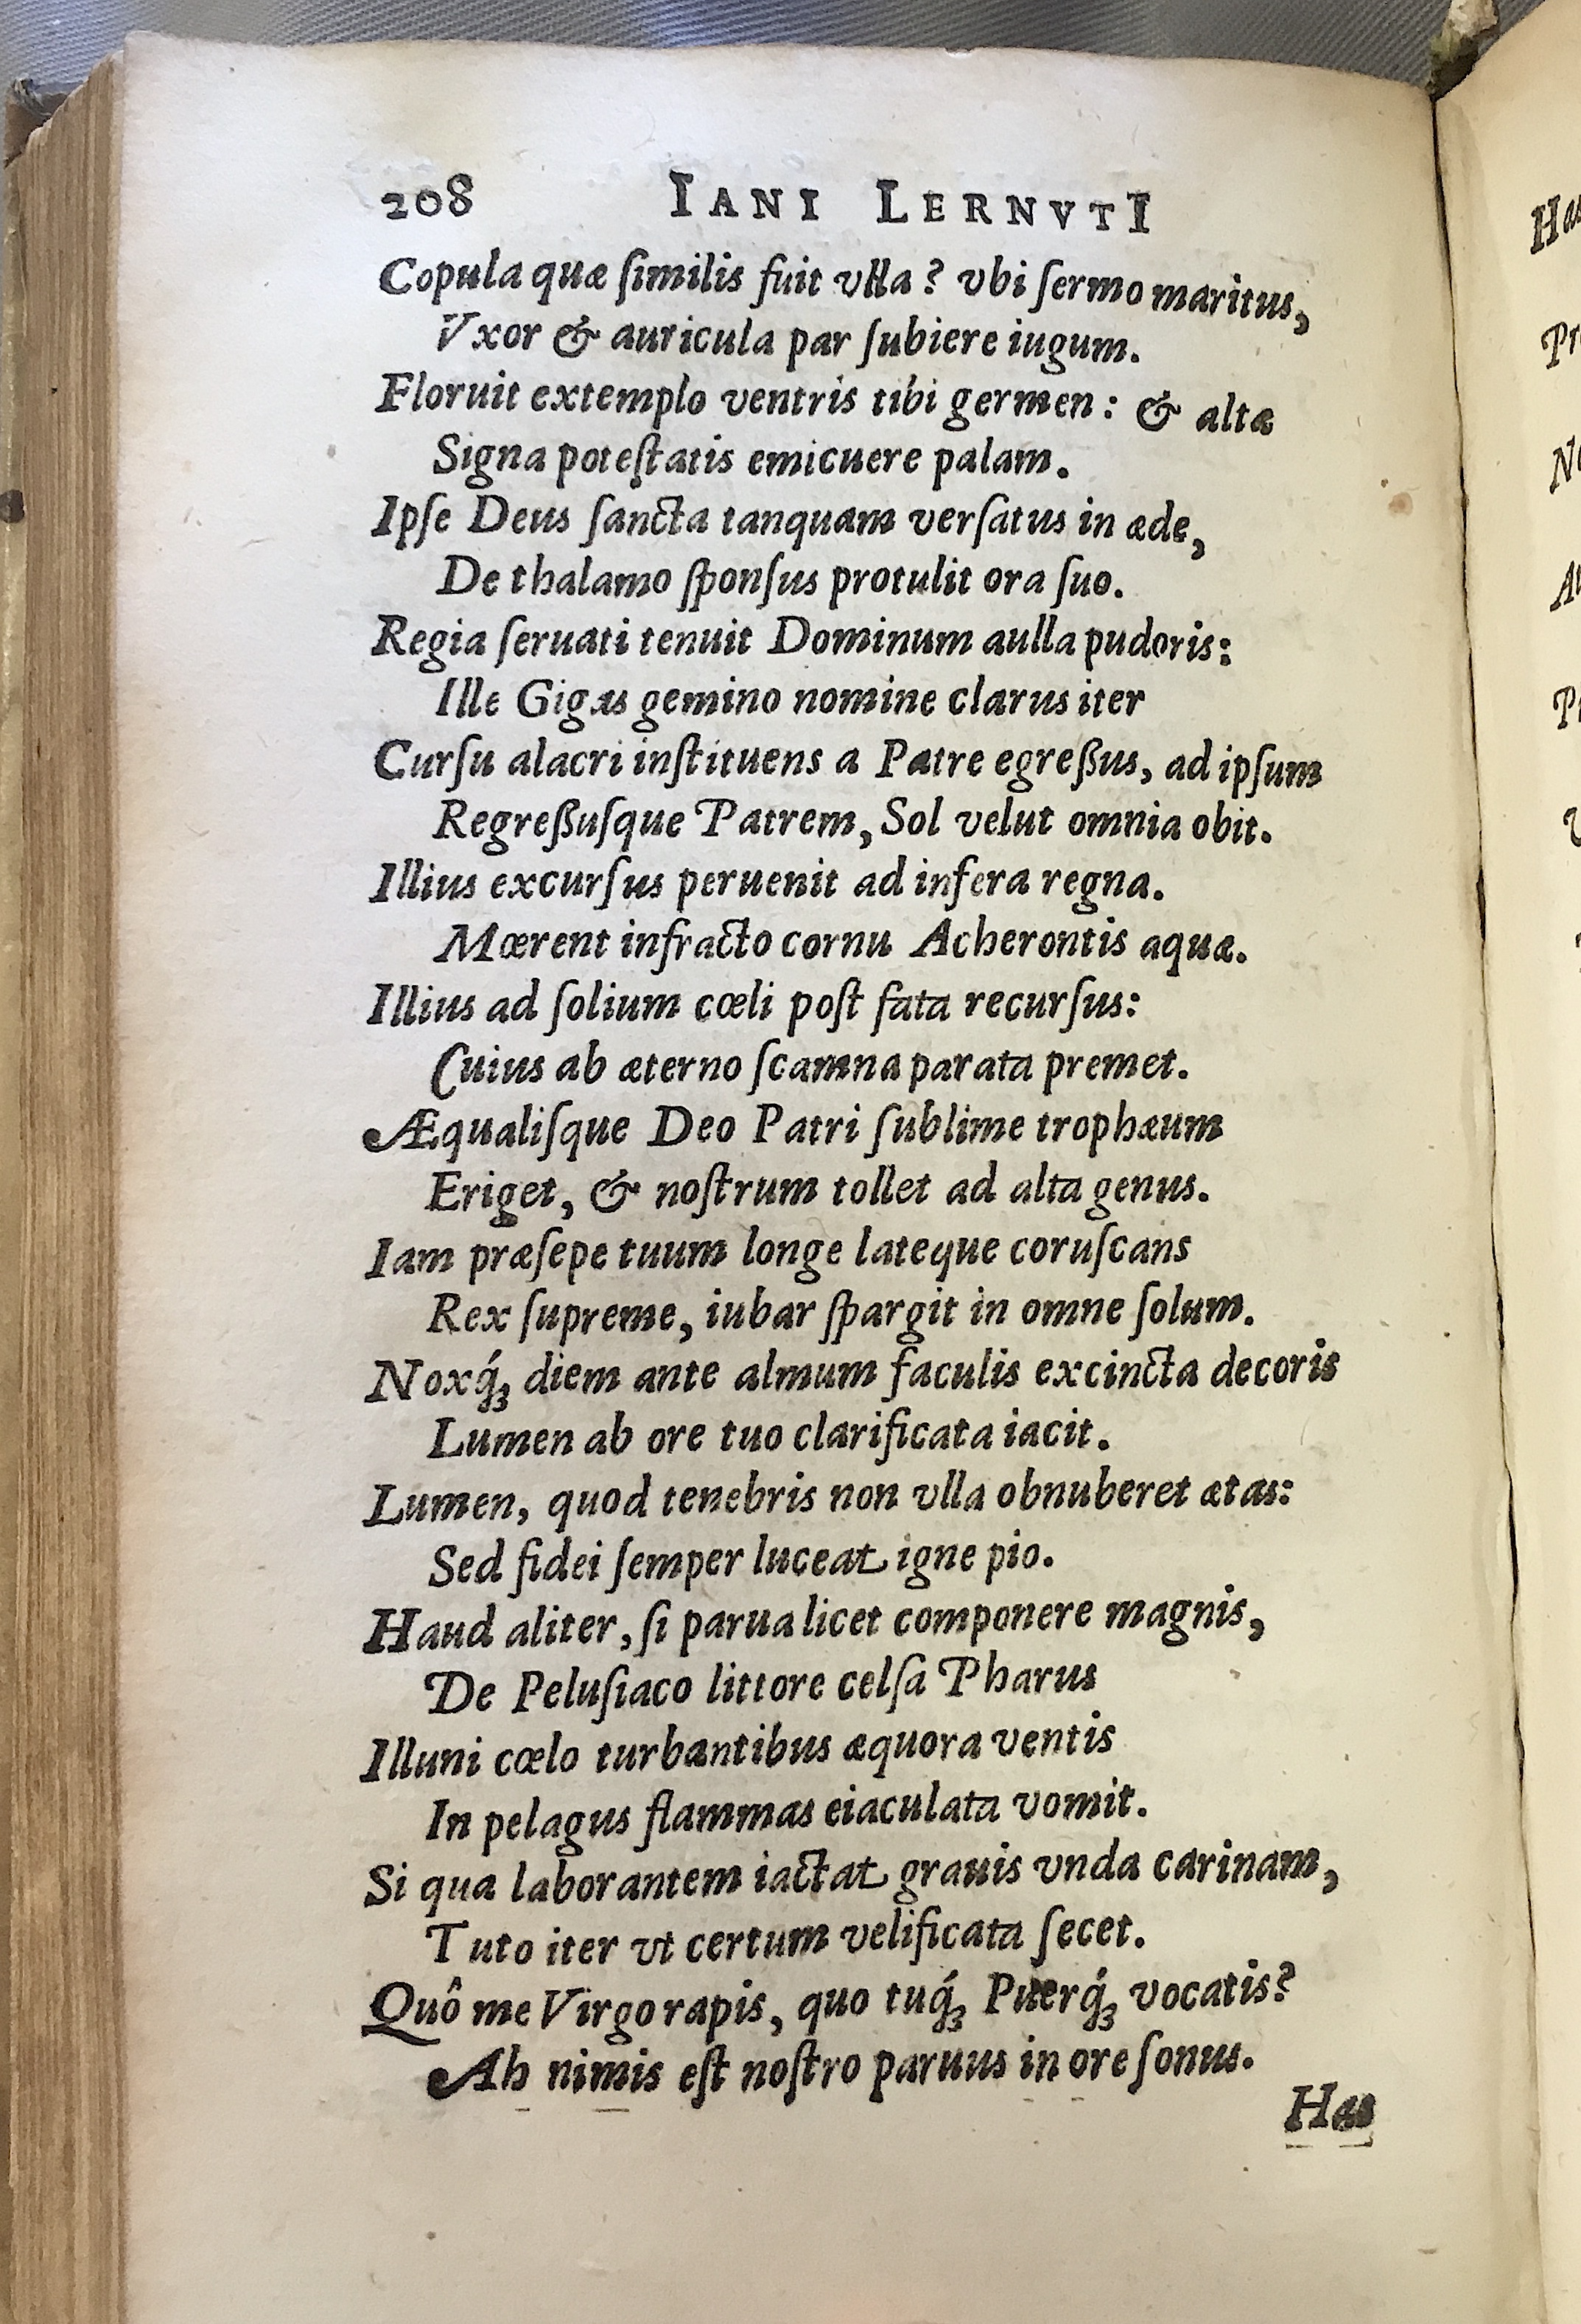 208 IANI LERNVTI
Copula quæ ſimilis fuit vlla? vbi ſermo maritus,
Vxor & auricula par ſubiere iugum.
Floruit extemplo ventris tibi germen: & altæ
Signa poteſtatis emicuere palam.
Ipſe Deus ſancta tanquam verſatus in æde,
De thalamo ſponſus protulit ora ſuo.
Regia ſeruati tenuit Dominum aulla pudoris:
Ille Gigas gemino nomine clarus iter
Curſu alacri inſtituens a Patre egreßus, ad ipſum
Regreßuſque Patrem, Sol velut omnia obit.
Illius excurſus peruenit ad infera regna.
Mœrent infracto cornu Acherontis aquæ.
Illius ad ſolium cœli poſt fata recurſus:
Cuius ab æterno ſcamna parata premet.
Æqualiſque Deo Patri ſublime trophæum
Eriget, & noſtrum tollet ad alta genus.
Iam præſepe tuum longe lateque coruſcans
Rex ſupreme, iubar ſpargit in omne ſolum.
Noxq́; diem ante almum faculis excincta decoris
Lumen ab ore tuo clarificata iacit.
Lumen, quod tenebris non vlla obnuberet ætas:
Sed fidei ſemper luceat igne pio.
Haud aliter, ſi parua licet componere magnis,
De Peluſiaco littore celſa Pharus
Illuni cœlo turbantibus æquora ventis
In pelagus flammas eiaculata vomit.
Si qua laborantem iactat grauis vnda carinam,
Tuto iter vt certum velificata ſecet.
Quô me Virgo rapis, quo tuq́; Puerq́; vocatis?
Ah nimis eſt noſtro paruus in ore ſonus.
Has